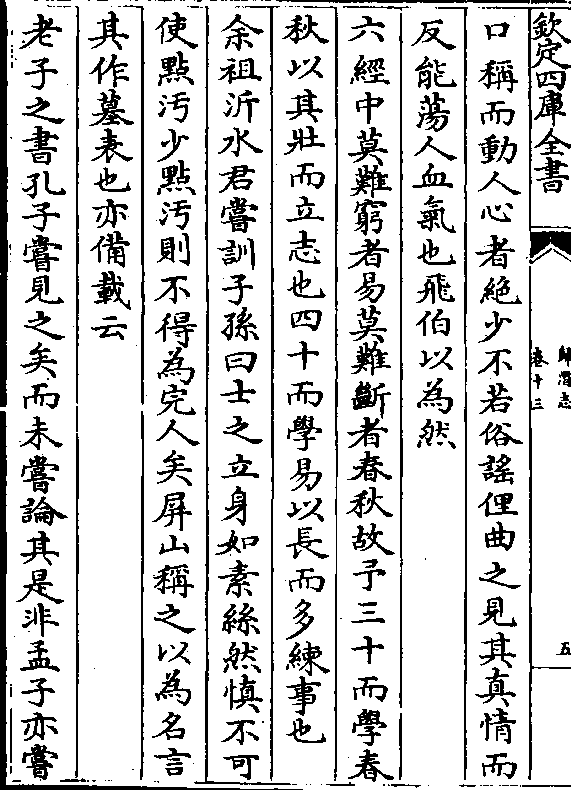 欽定四庫全書
歸潛志
卷十三
五
口稱而動人心者絶少不若俗謡俚曲之見其真情而
反能蕩人血氣也飛伯以為然
六經中莫難窮者易莫難斷者春秋故予三十而學春
秋以其壯而立志也四十而學易以長而多練事也
余祖沂水君嘗訓子孫曰士之立身如素絲然慎不可
使點汚少點汚則不得為完人矣屏山稱之以為名言
其作墓表也亦備載云
老子之書孔子嘗見之矣而未嘗論其是非孟子亦嘗